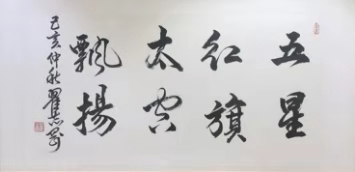 五星
红旗
太空
飘揚
己亥仲秋翟志刚